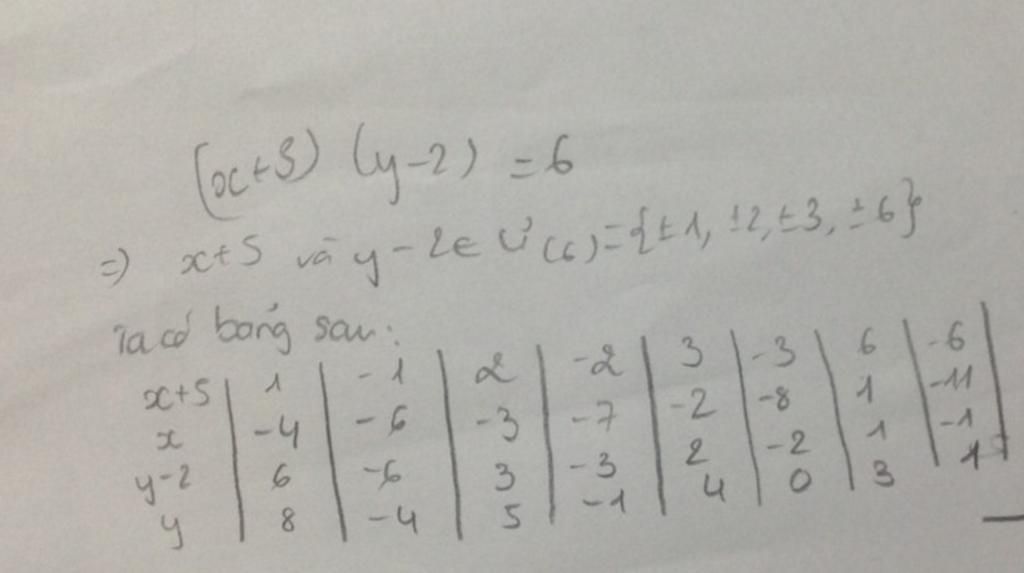 (x+5) (y-2) = 6
=) x+5 và y-2 ∈ Ư(6)={±1, ±2, ±3, ±6}
Ta có bảng sau:
x+5 | 1 | -1 | 2 | -2 | 3 | -3 | 6 | -6
x | -4 | -6 | -3 | -7 | -2 | -8 | 1 | -11
y-2 | 6 | -6 | 3 | -3 | 2 | -2 | 1 | -1
y | 8 | -4 | 5 | -1 | 4 | 0 | 3 | 1